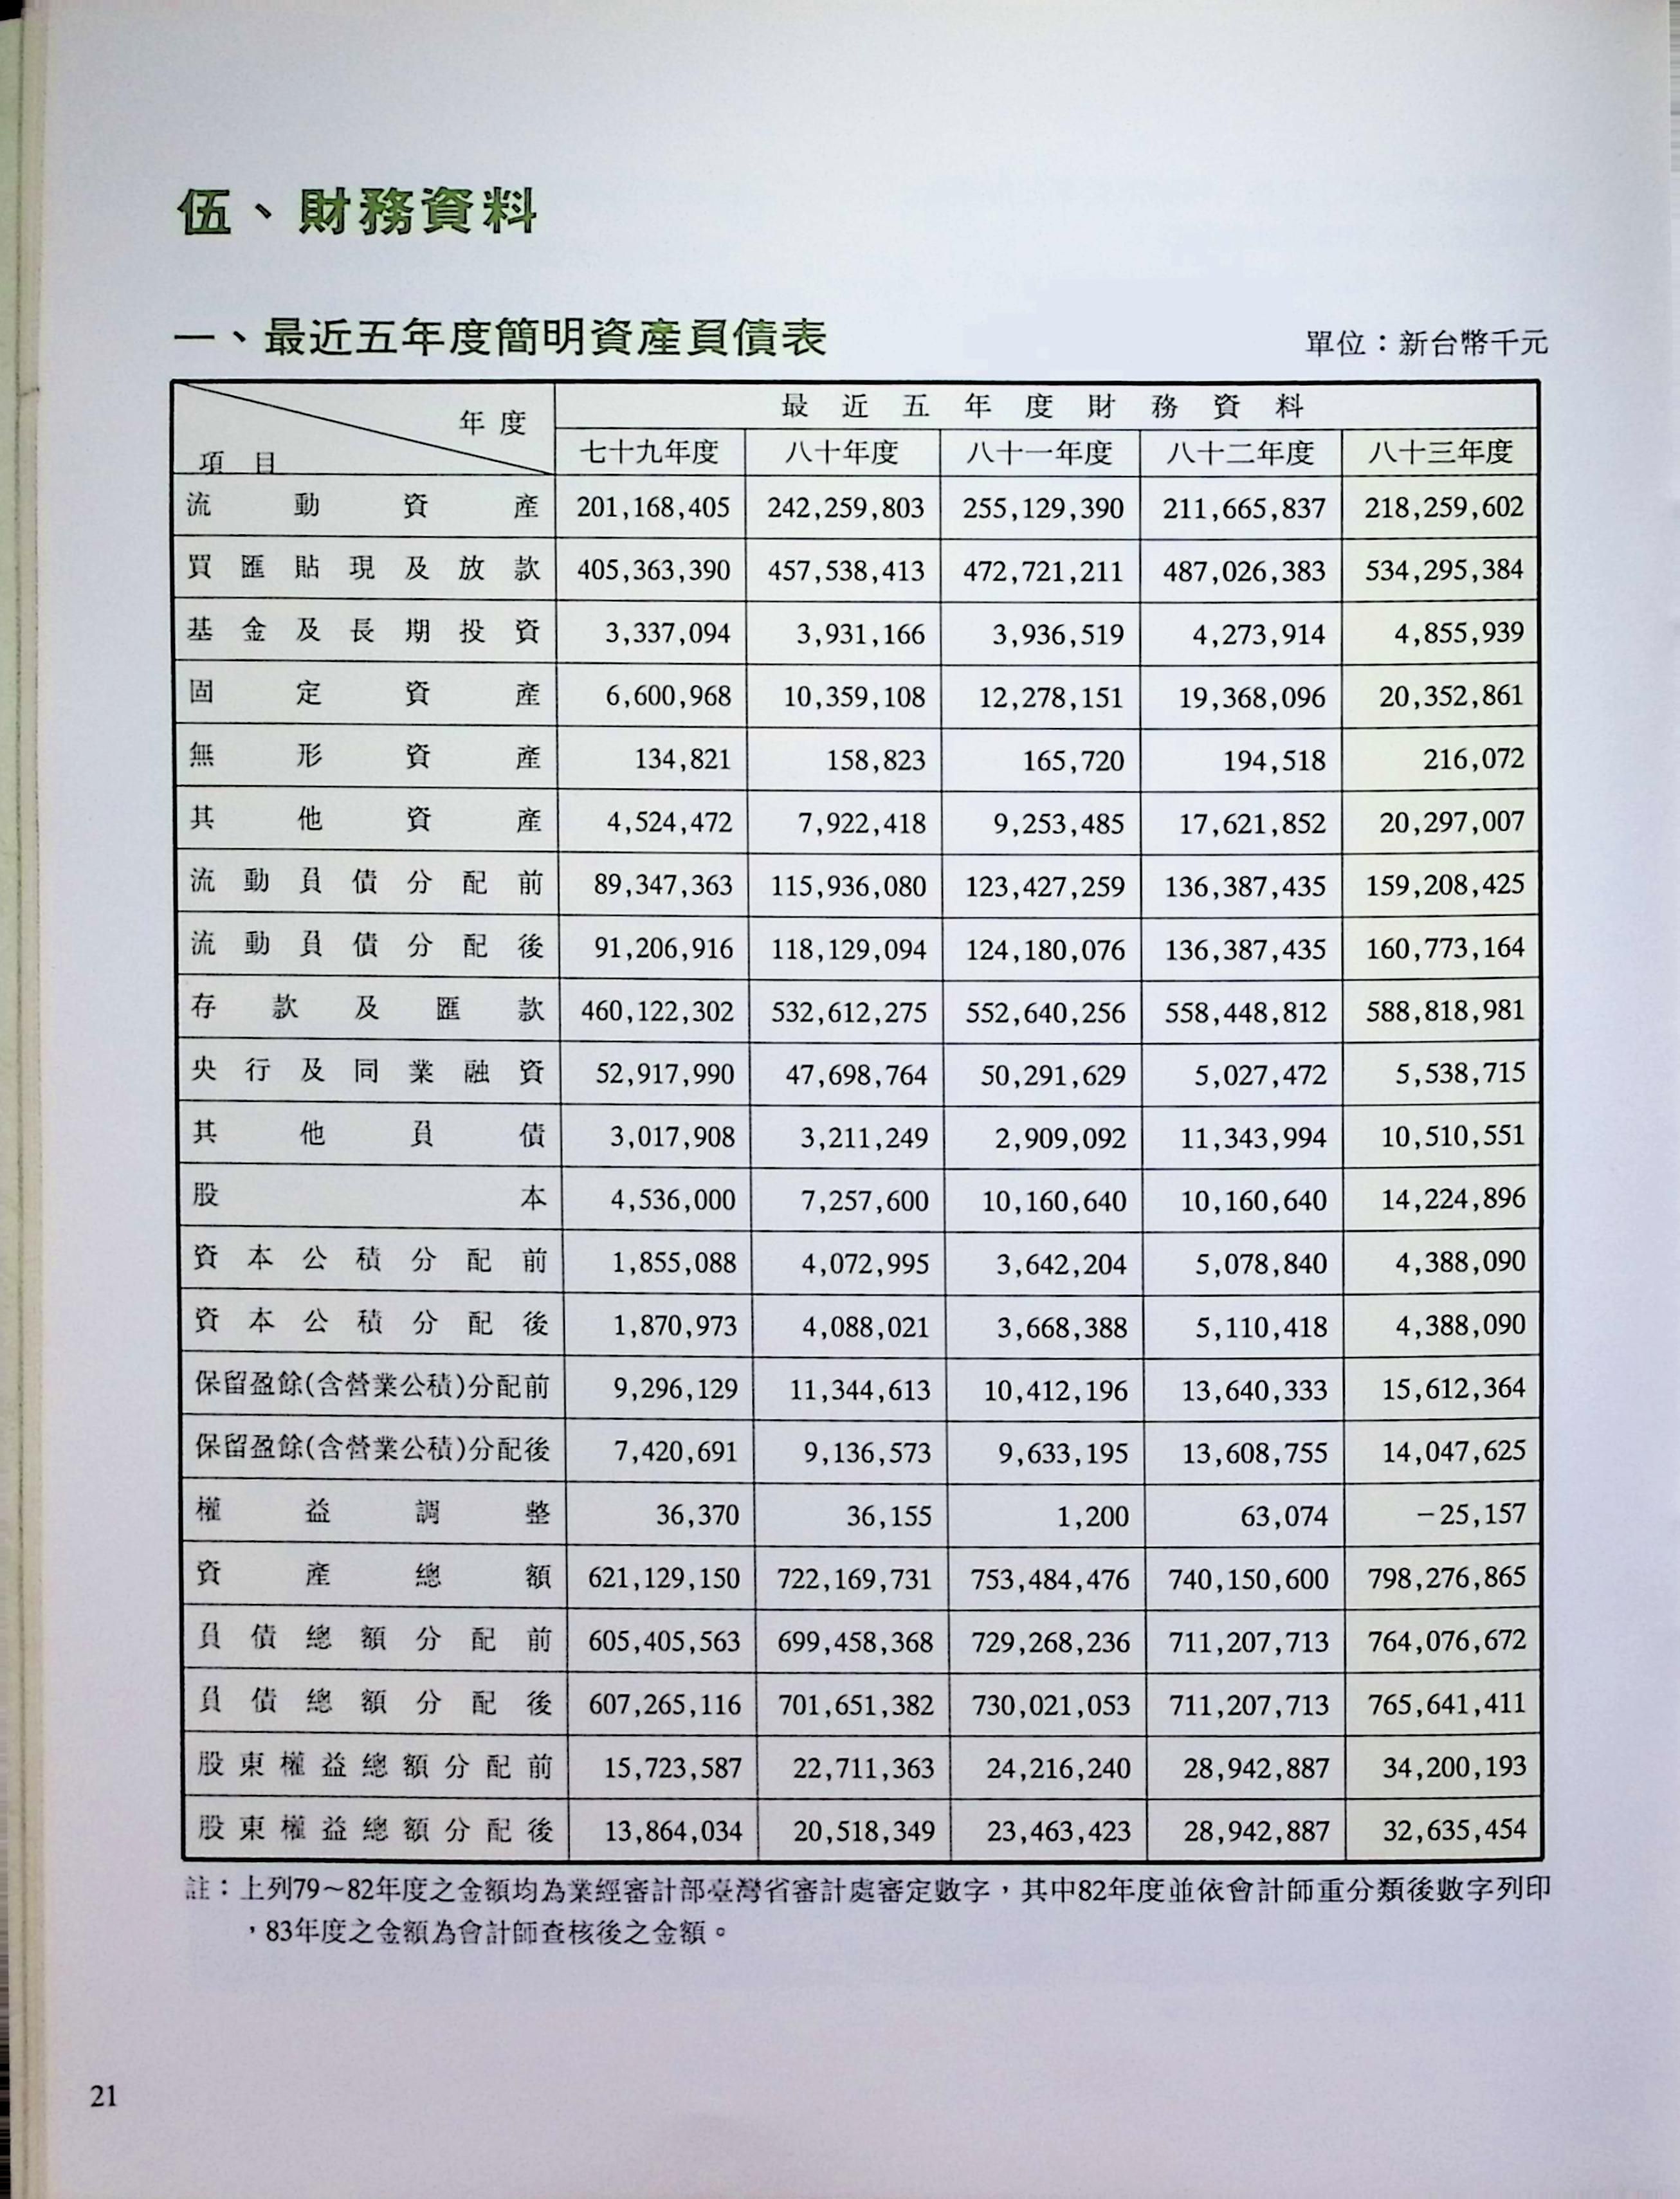 伍、財務資料
一、最近五年度簡明資產負債表 單位：新台幣千元
年度 最近五年度財務資料
項目 七十九年度 八十年度 八十一年度 八十二年度 八十三年度
流動資產 201,168,405 242,259,803 255,129,390 211,665,837 218,259,602
買匯貼現及放款 405,363,390 457,538,413 472,721,211 487,026,383 534,295,384
基金及長期投資 3,337,094 3,931,166 3,936,519 4,273,914 4,855,939
固定資產 6,600,968 10,359,108 12,278,151 19,368,096 20,352,861
無形資產 134,821 158,823 165,720 194,518 216,072
其他資產 4,524,472 7,922,418 9,253,485 17,621,852 20,297,007
流動負債分配前 89,347,363 115,936,080 123,427,259 136,387,435 159,208,425
流動負債分配後 91,206,916 118,129,094 124,180,076 136,387,435 160,773,164
存款及匯款 460,122,302 532,612,275 552,640,256 558,448,812 588,818,981
央行及同業融資 52,917,990 47,698,764 50,291,629 5,027,472 5,538,715
其他負債 3,017,908 3,211,249 2,909,092 11,343,994 10,510,551
股本 4,536,000 7,257,600 10,160,640 10,160,640 14,224,896
資本公積分配前 1,855,088 4,072,995 3,642,204 5,078,840 4,388,090
資本公積分配後 1,870,973 4,088,021 3,668,388 5,110,418 4,388,090
保留盈餘(含營業公積)分配前 9,296,129 11,344,613 10,412,196 13,640,333 15,612,364
保留盈餘(含營業公積)分配後 7,420,691 9,136,573 9,633,195 13,608,755 14,047,625
權益調整 36,370 36,155 1,200 63,074 －25,157
資產總額 621,129,150 722,169,731 753,484,476 740,150,600 798,276,865
負債總額分配前 605,405,563 699,458,368 729,268,236 711,207,713 764,076,672
負債總額分配後 607,265,116 701,651,382 730,021,053 711,207,713 765,641,411
股東權益總額分配前 15,723,587 22,711,363 24,216,240 28,942,887 34,200,193
股東權益總額分配後 13,864,034 20,518,349 23,463,423 28,942,887 32,635,454
註：上列79～82年度之金額均為業經審計部臺灣省審計處審定數字，其中82年度並依會計師重分類後數字列印
，83年度之金額為會計師查核後之金額。
21